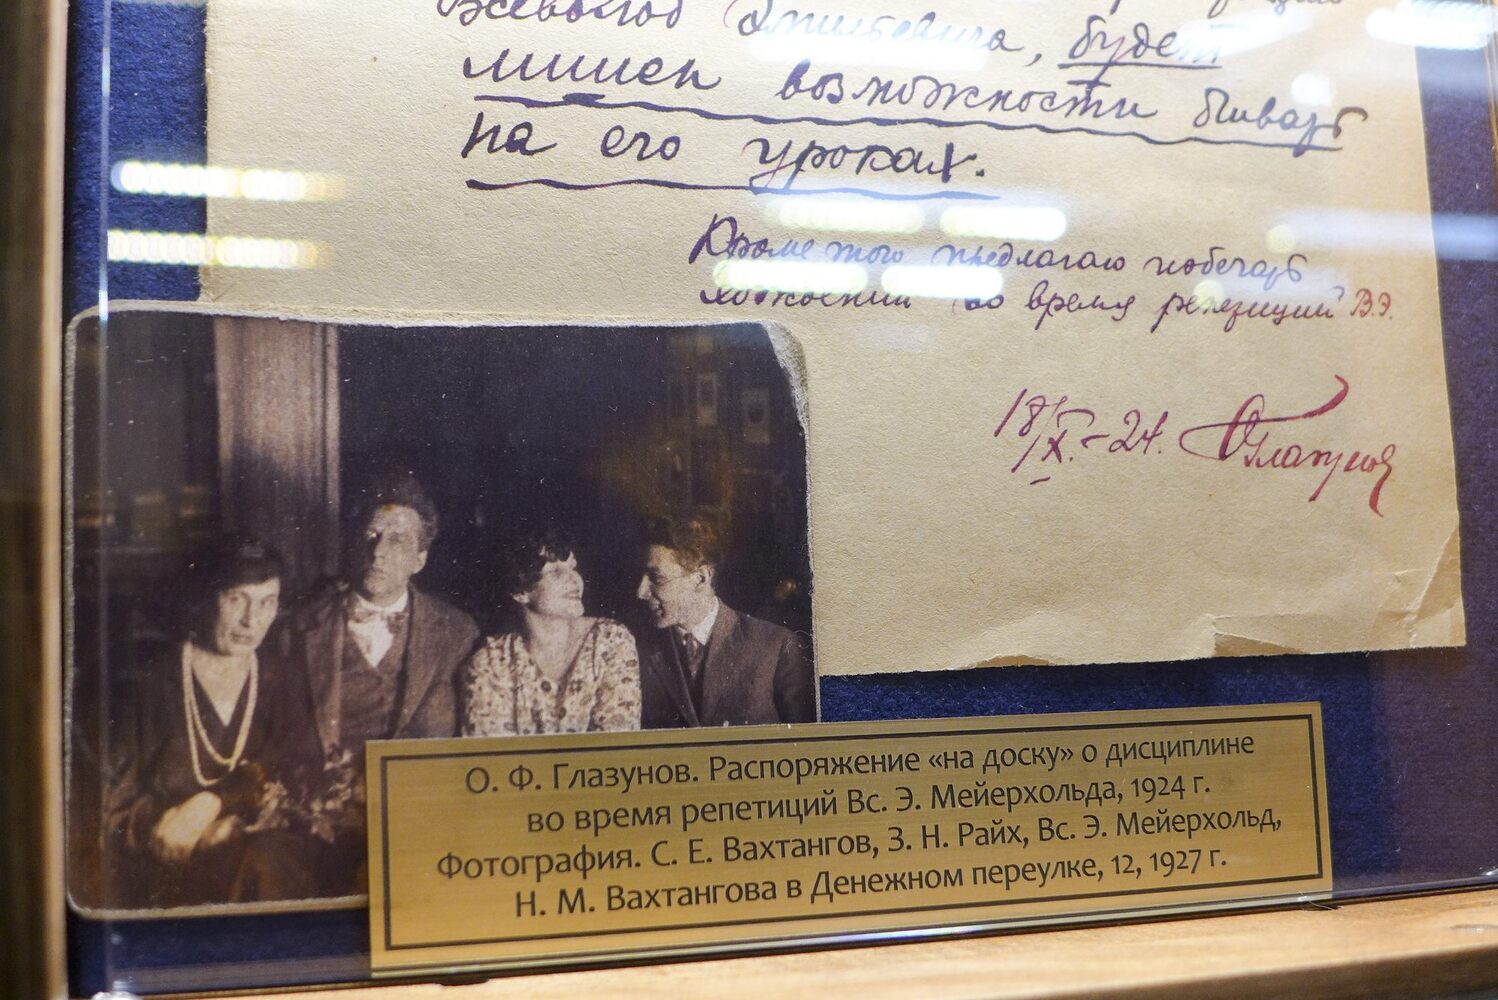 Всеволод Эмильевича, будет
лишен возможности бывать
на его уроках.
Кроме того предлагаю избегать
хождений во время репетиций В.Э.
18/X.-24. ОГлазунов
О. Ф. Глазунов. Распоряжение «на доску» о дисциплине
во время репетиций Вс. Э. Мейерхольда, 1924 г.
Фотография. С. Е. Вахтангов, З. Н. Райх, Вс. Э. Мейерхольд,
Н. М. Вахтангова в Денежном переулке, 12, 1927 г.